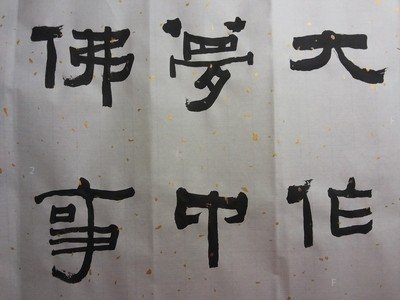 大作
夢中
佛事